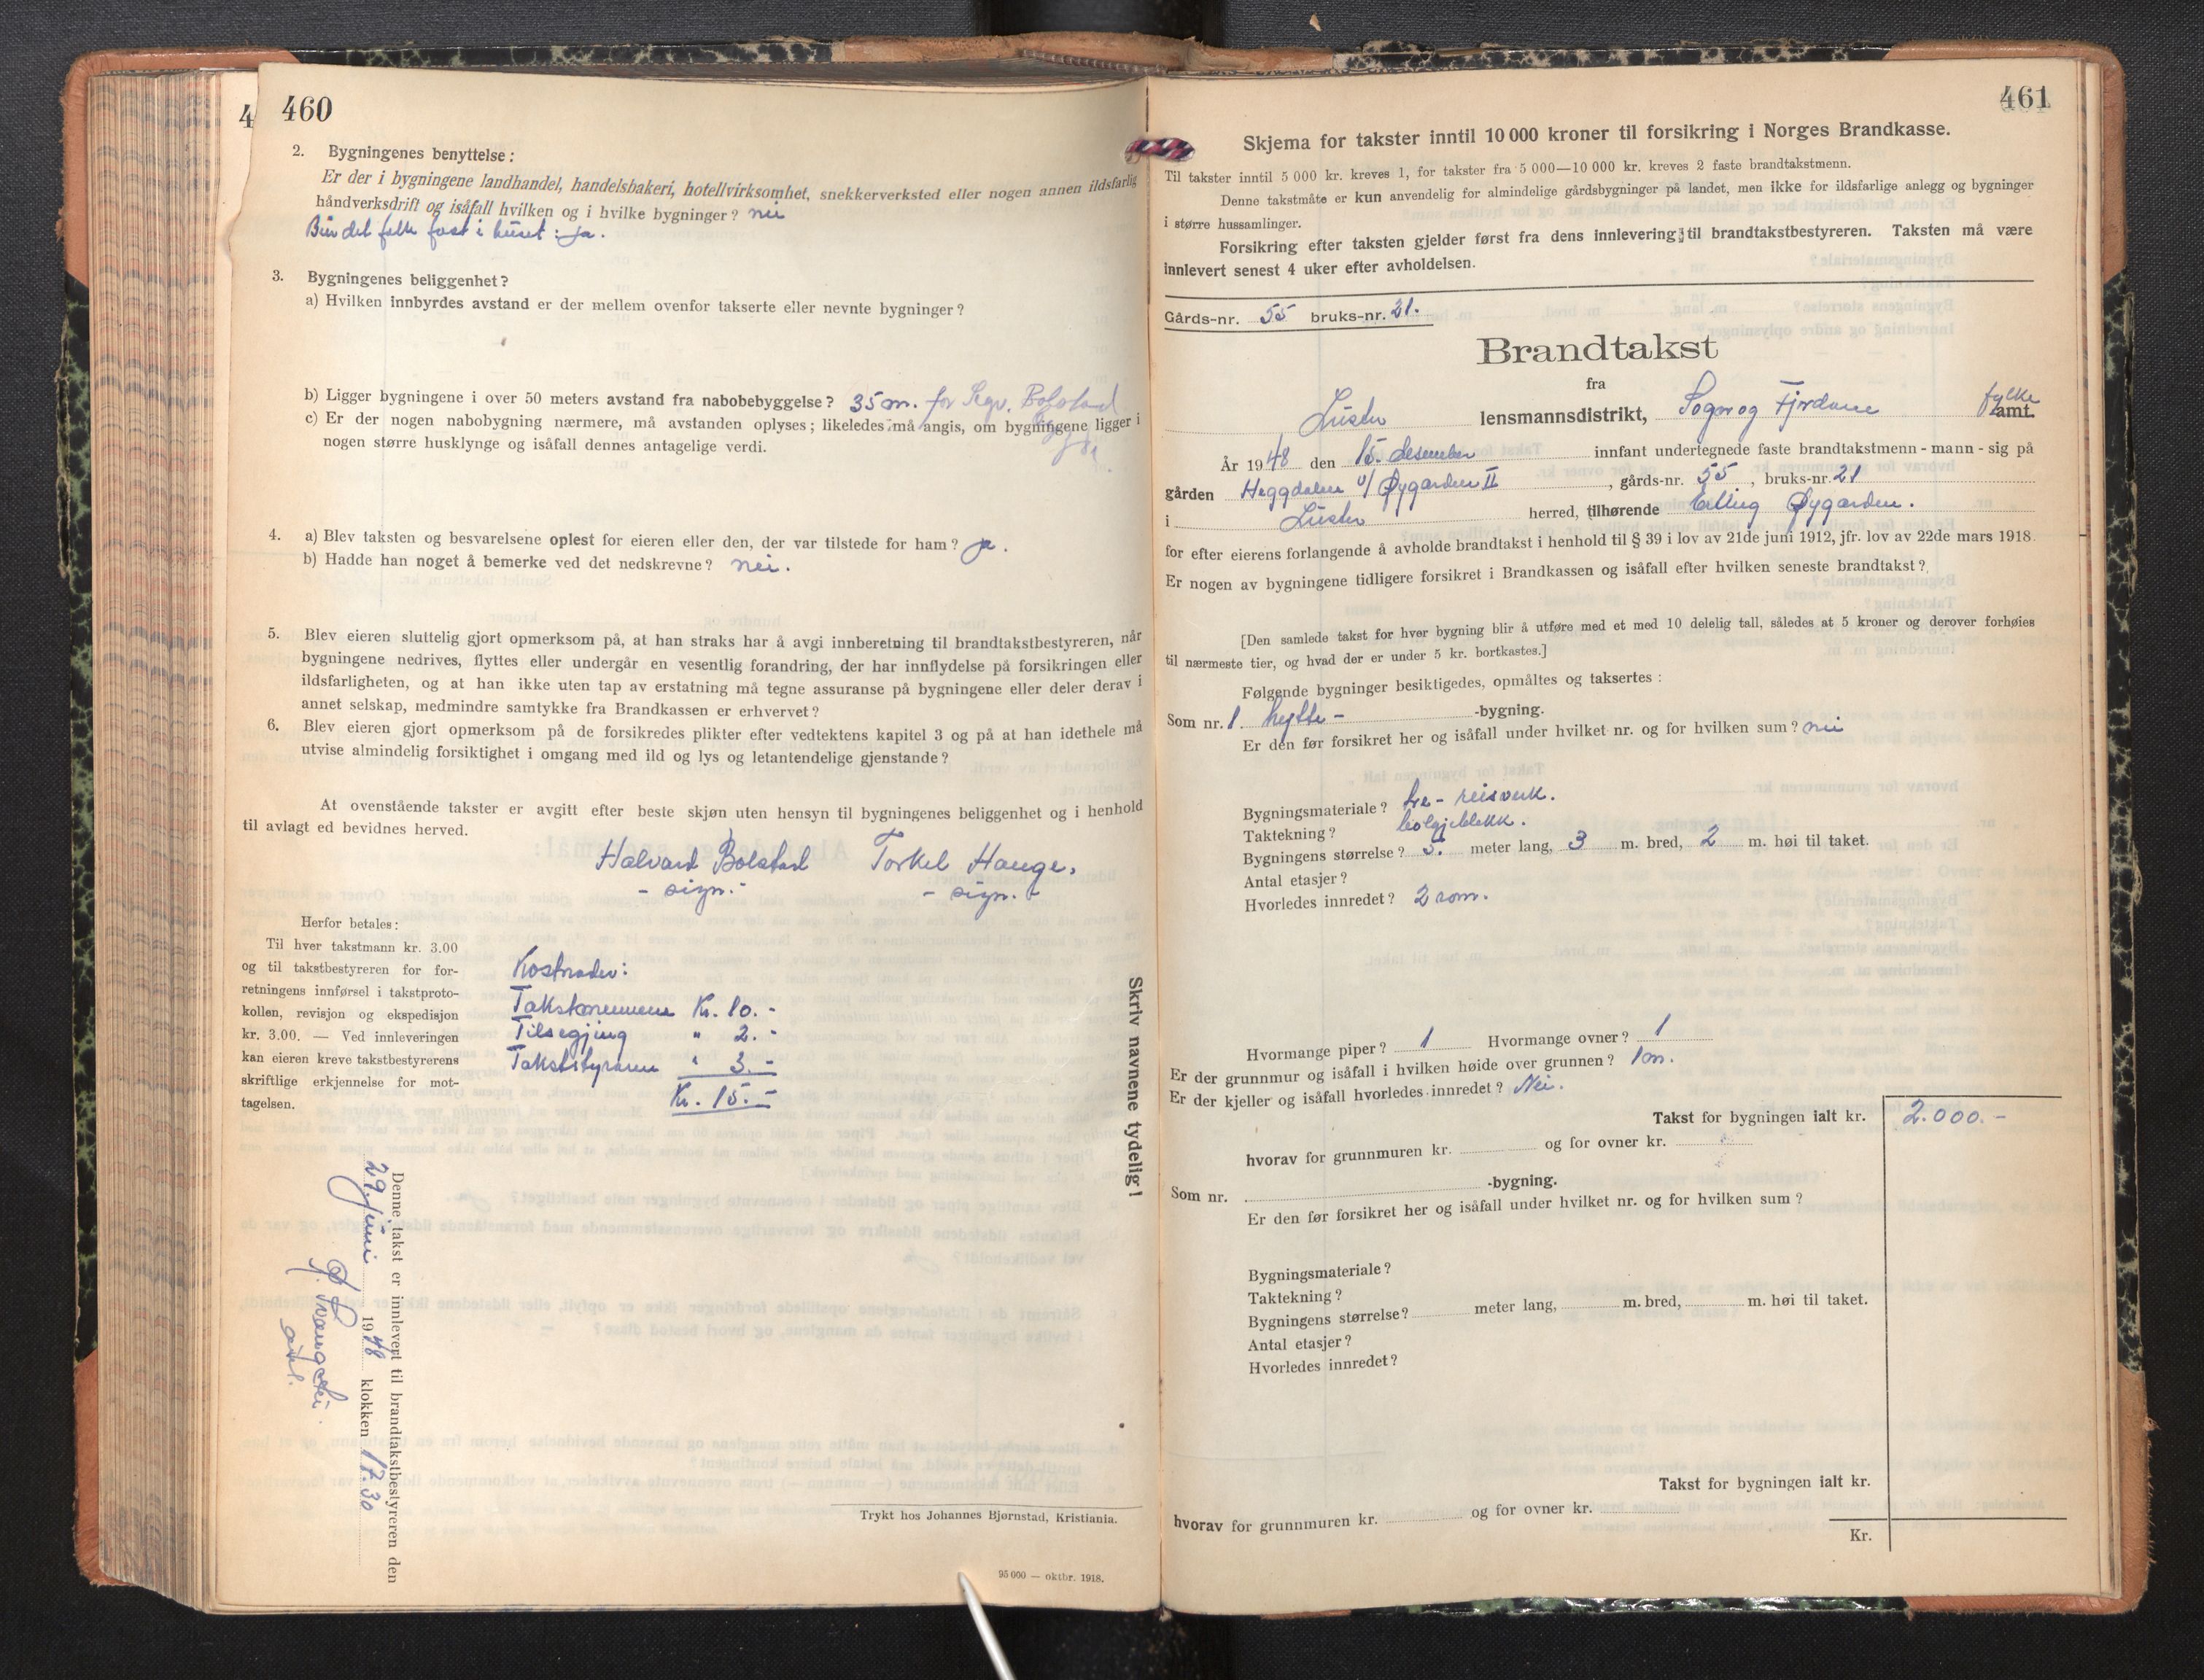 4
460
2. Bygningenes benyttelse:
Er der i bygningene landhandel, handelsbakeri, hotellvirksomhet, snekkerverksted eller nogen annen ildsfarlig
håndverksdrift og isåfall hvilken og i hvilke bygninger? nei
Bur det folk fast i huset: ja.
3. Bygningenes beliggenhet?
a) Hvilken innbyrdes avstand er der mellem ovenfor takserte eller nevnte bygninger?
b) Ligger bygningene i over 50 meters avstand fra nabobebyggelse? 35 m. for Bolstad
c) Er der nogen nabobygning nærmere, må avstanden oplyses; likeledes må angis, om bygningene ligger i
nogen større husklynge og isåfall dennes antagelige verdi.
4. a) Blev taksten og besvarelsene oplest for eieren eller den, der var tilstede for ham? ja.
b) Hadde han noget å bemerke ved det nedskrevne? nei.
5. Blev eieren sluttelig gjort opmerksom på, at han straks har å avgi innberetning til brandtakstbestyreren, når
bygningene nedrives, flyttes eller undergår en vesentlig forandring, der har innflydelse på forsikringen eller
ildsfarligheten, og at han ikke uten tap av erstatning må tegne assuranse på bygningene eller deler derav i
annet selskap, medmindre samtykke fra Brandkassen er erhvervet?
6. Blev eieren gjort opmerksom på de forsikredes plikter efter vedtektens kapitel 3 og på at han idethele må
utvise almindelig forsiktighet i omgang med ild og lys og letantendelige gjenstande?
At ovenstående takster er avgitt efter beste skjøn uten hensyn til bygningenes beliggenhet og i henhold
til avlagt ed bevidnes herved.
Halvard Bolstad Torkel Hauge,
- sign. - - sign. -
Herfor betales:
Til hver takstmann kr. 3.00
og til takstbestyreren for for-
retningens innførsel i takstproto-
kollen, revisjon og ekspedisjon
kr. 3.00. — Ved innleveringen
kan eieren kreve takstbestyrerens
skriftlige erkjennelse for mot-
tagelsen.
Kostnader:
Takstmennene Kr. 10. -
Tilsegjing " 2. -
Takststyraren " 3. -
Kr. 15. -
Skriv navnene tydelig!
Denne takst er innlevert til brandtakstbestyreren den
29 juni 1948 klokken 17.30
Trykt hos Johannes Bjørnstad, Kristiania.
95 000 — oktbr. 1918.
461
Skjema for takster inntil 10 000 kroner til forsikring i Norges Brandkasse.
Til takster inntil 5 000 kr. kreves 1, for takster fra 5 000—10 000 kr. kreves 2 faste brandtakstmenn.
Denne takstmåte er kun anvendelig for almindelige gårdsbygninger på landet, men ikke for ildsfarlige anlegg og bygninger
i større hussamlinger.
Forsikring efter taksten gjelder først fra dens innlevering til brandtakstbestyreren. Taksten må være
innlevert senest 4 uker efter avholdelsen.
Gårds-nr. 55 bruks-nr. 21.
Brandtakst
fra
Luster lensmannsdistrikt, Sogn og Fjordane fylke amt.
År 1948 den 15. desember innfant undertegnede faste brandtakstmenn - mann - sig på
gården Heggdalen u/ Øygarden II, gårds-nr. 55, bruks-nr. 21
i Luster herred, tilhørende Elling Øygarden.
for efter eierens forlangende å avholde brandtakst i henhold til § 39 i lov av 21de juni 1912, jfr. lov av 22de mars 1918.
Er nogen av bygningene tidligere forsikret i Brandkassen og isåfall efter hvilken seneste brandtakst?
[Den samlede takst for hver bygning blir å utføre med et med 10 delelig tall, således at 5 kroner og derover forhøies
til nærmeste tier, og hvad der er under 5 kr. bortkastes.]
Følgende bygninger besiktigedes, opmåltes og taksertes:
Som nr. 1 hytte - -bygning.
Er den før forsikret her og isåfall under hvilket nr. og for hvilken sum? nei
Bygningsmateriale? tre - reisverk.
Taktekning? bolgjeblekk.
Bygningens størrelse? 5. meter lang, 3 m. bred, 2 m. høi til taket.
Antal etasjer?
Hvorledes innredet? 2 rom.
Hvormange piper? 1 Hvormange ovner? 1
Er der grunnmur og isåfall i hvilken høide over grunnen? 1 m.
Er der kjeller og isåfall hvorledes innredet? Nei.
Takst for bygningen ialt kr. 2.000.-
hvorav for grunnmuren kr. og for ovner kr.
Som nr. -bygning.
Er den før forsikret her og isåfall under hvilket nr. og for hvilken sum?
Bygningsmateriale?
Taktekning?
Bygningens størrelse? meter lang, m. bred, m. høi til taket.
Antal etasjer?
Hvorledes innredet?
Takst for bygningen ialt kr.
hvorav for grunnmuren kr. og for ovner kr.
Kr.